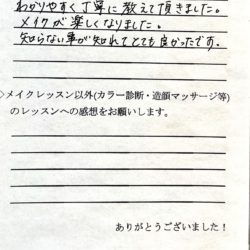 わかりやすく丁寧に教えて頂きました。
メイクが楽しくなりました。
知らない事が知れてとても良かったです.
◇メイクレッスン以外(カラー診断・造顔マッサージ等)
のレッスンへの感想をお願いします。
ありがとうございました！